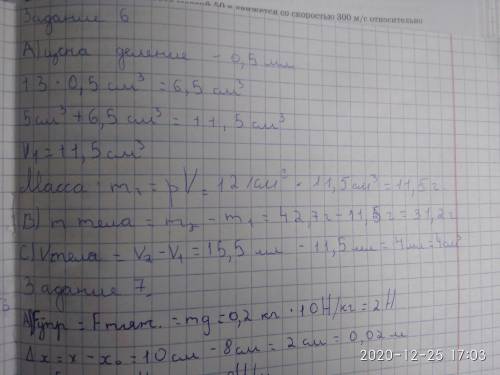 50 г движется со скоростью 300 м/с относительно
Задание 6
А) цена деление - 0,5 мл
13 · 0,5 см³ = 6,5 см³
5 см³ + 6,5 см³ = 11,5 см³
V₁ = 11,5 см³
Масса: m₁ = pV = 1 г/см³ · 11,5 см³ = 11,5 г.
B) m тела = m₂ - m₁ = 42,7 г - 11,5 г = 31,2 г
C) Vтела = V₂ - V₁ = 15,5 мл - 11,5 мл = 4 мл = 4 см³
Задание 7.
A) Fупр = Fтяж. = mg = 0,2 кг · 10 Н/кг = 2 Н
Δx = x - x₀ = 10 см - 8 см = 2 см = 0,02 м
2020-12-25 17:03